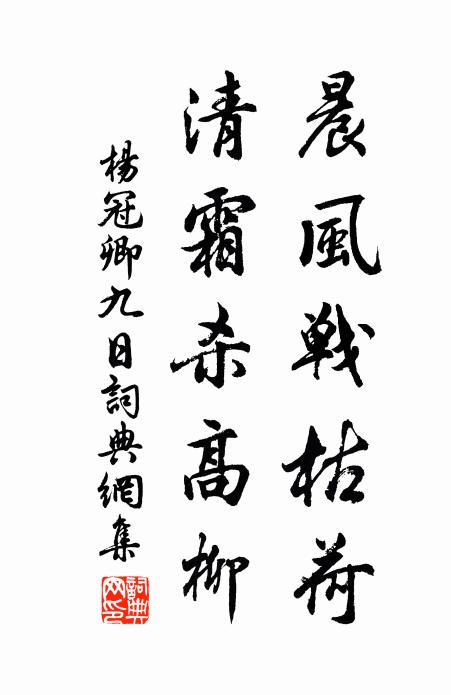 晨風戦枯荷
清霜杀高柳
楊冠卿九日詞典網集
詞典网印